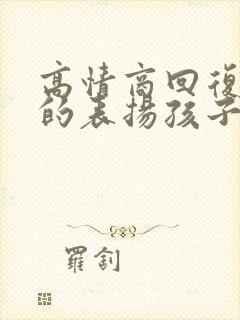 高情商回復
的表揚孩子
羅釗